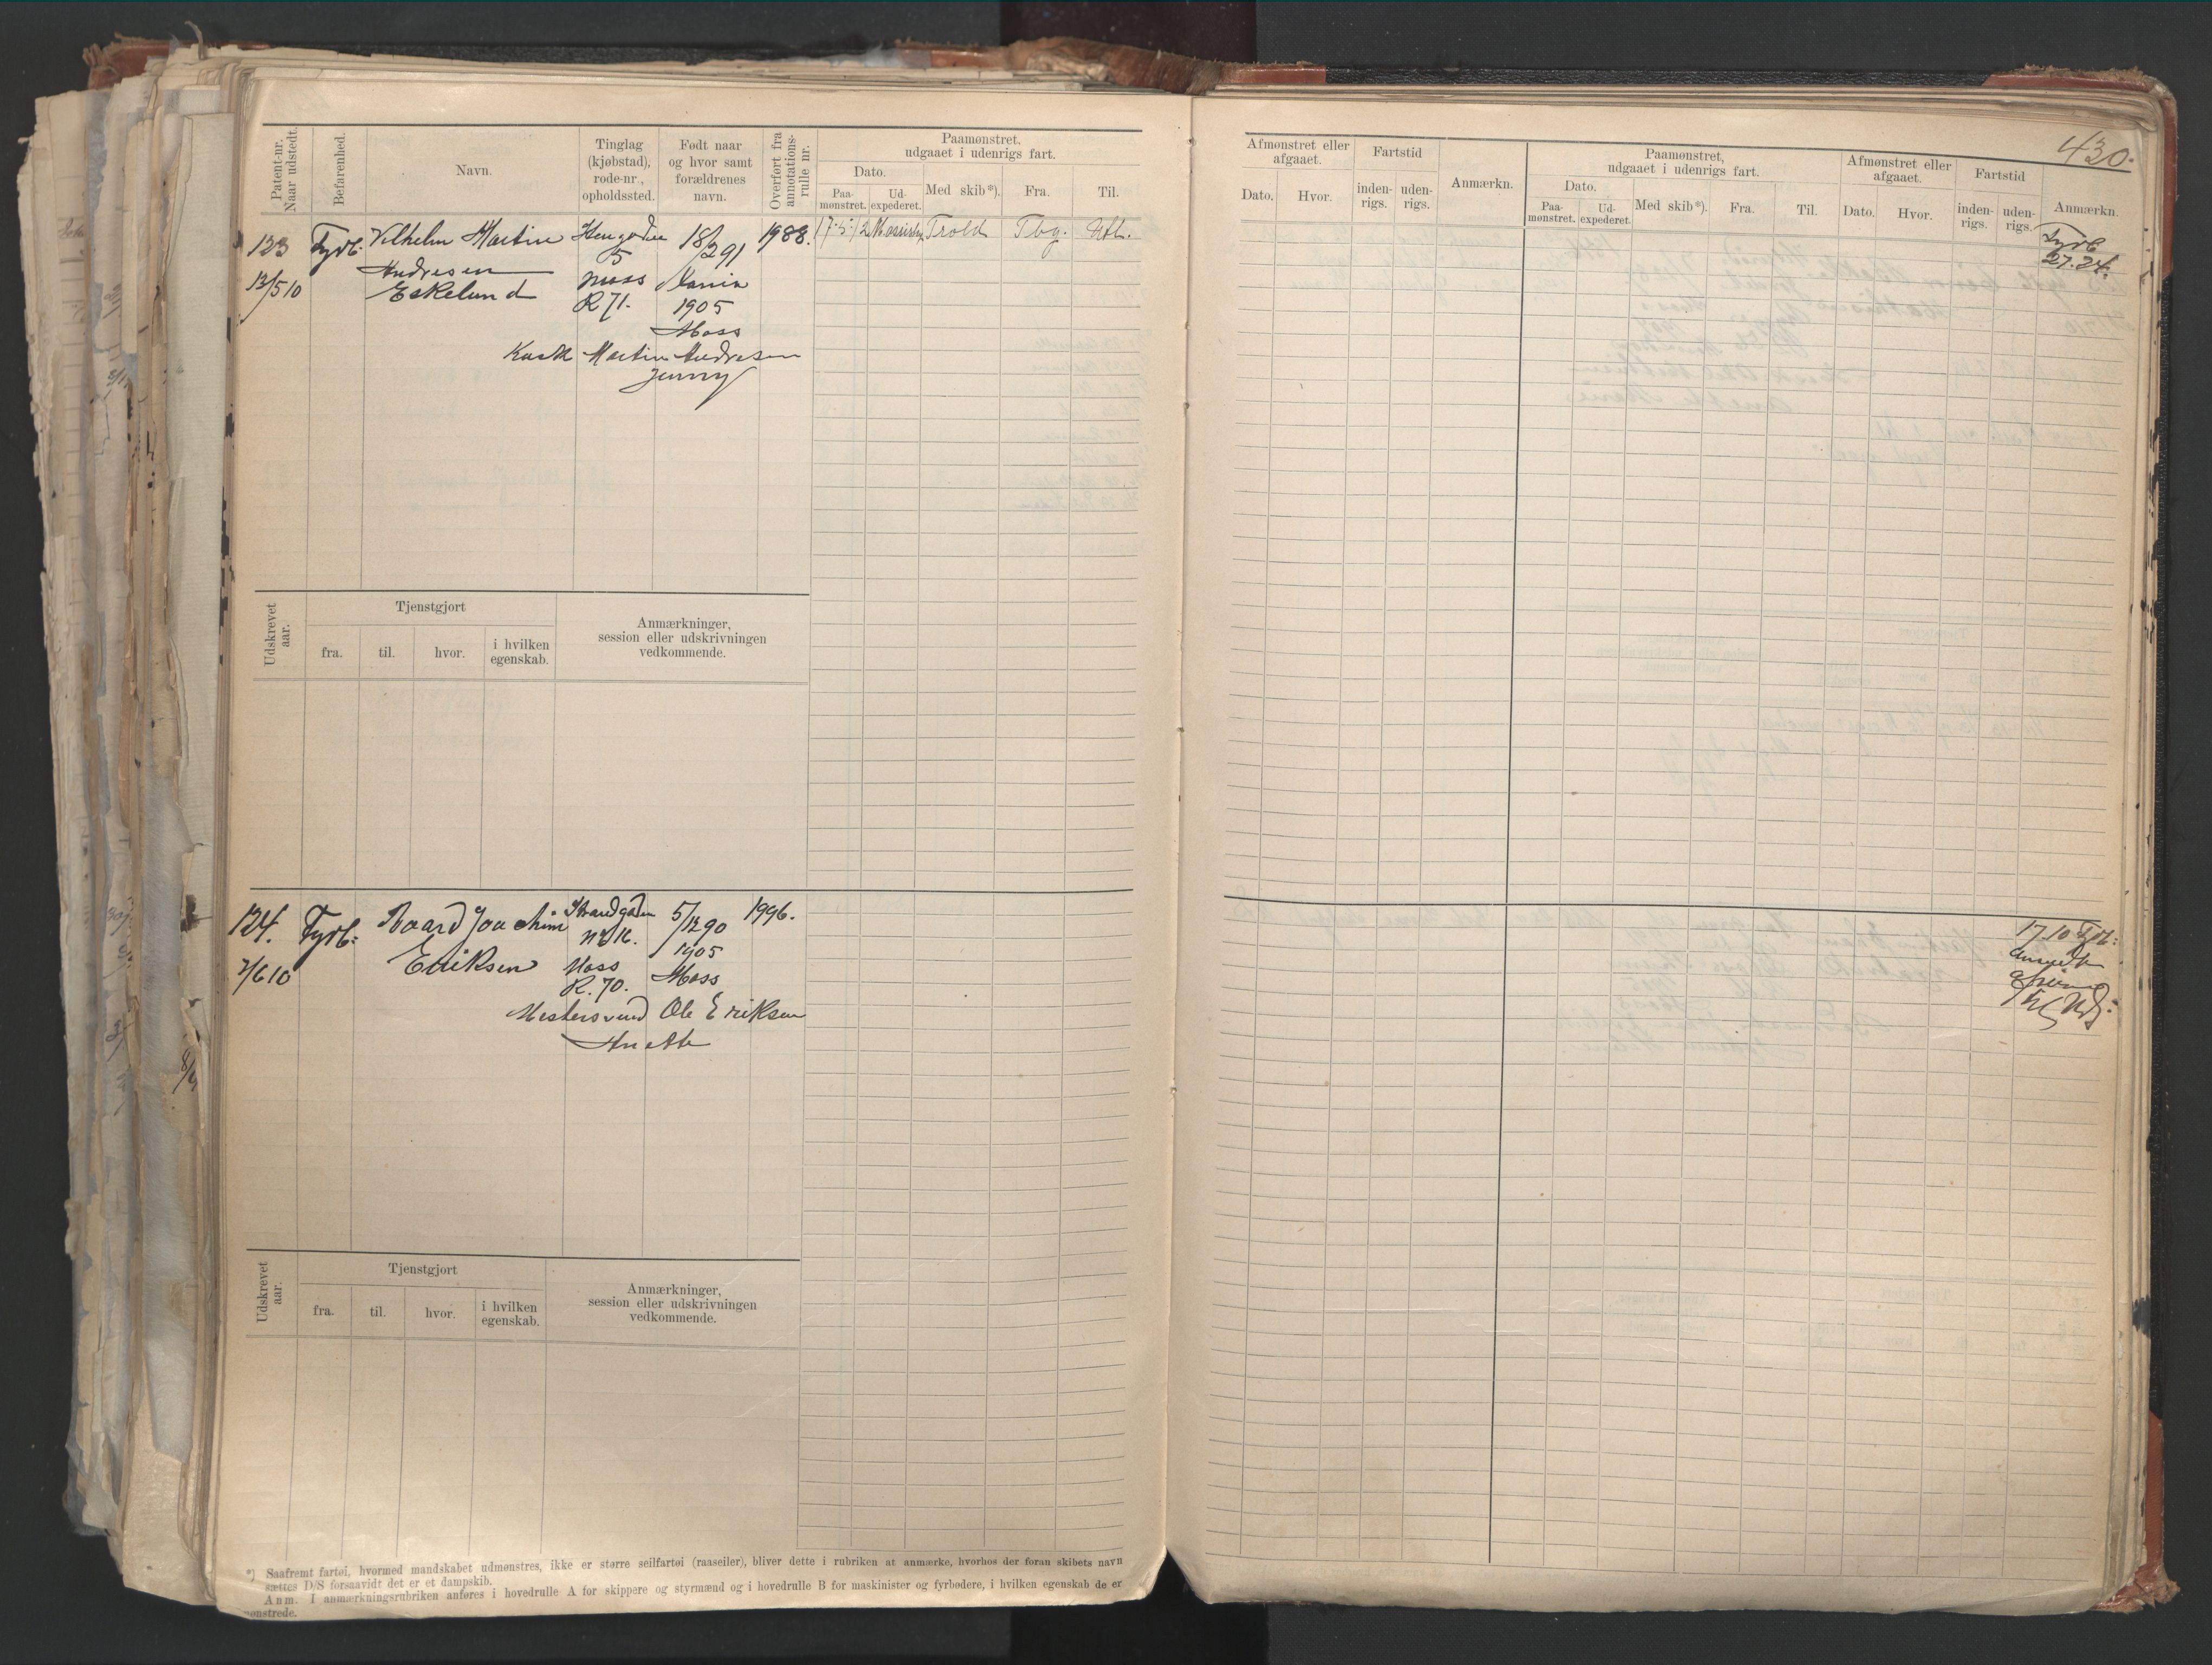 430.
Patent-nr.
Naar udstedt.
Befarenhed.
Navn.
Tinglag
(kjøbstad),
rode-nr.,
opholdssted.
Født naar
og hvor samt
forældrenes
navn.
Overført fra
annotations-
rulle nr.
Paamønstret,
udgaaet i udenrigs fart.
Dato.
Paa-
mønstret.
Ud-
expederet.
Med skib*).
Fra.
Til.
123 Fyrb. Vilhelm Martin 18/2 91 1988. 17.5.12 Trold Tbg.
Andresen 5
13/5 10 Eskelund Moss
R 71. 1905
Moss
Martin Andresen
Jenny
Udskrevet
aar.
Tjenstgjort
fra.
til.
hvor.
i hvilken
egenskab.
Anmærkninger,
session eller udskrivningen
vedkommende.
124. Fyrb. Joachim Strandgaden 5/12 90 1996.
No 16. 1905
7/6 10 Eriksen Moss Moss
R. 70.
Ole Eriksen
Anette
Udskrevet
aar.
Tjenstgjort
fra.
til.
hvor.
i hvilken
egenskab.
Anmærkninger,
session eller udskrivningen
vedkommende.
*) Saafremt fartøi, hvormed mandskabet udmønstres, ikke er større seilfartøi (raaseiler), bliver dette i rubriken at anmærke, hvorhos der foran skibets navn
sættes D/S forsaavidt det er et dampskib.
Anm. I anmærkningsrubriken anføres i hovedrulle A for skippere og styrmænd og i hovedrulle B for maskinister og fyrbødere, i hvilken egenskab de er
mønstrede.
Afmønstret eller
afgaaet.
Dato.
Hvor.
Fartstid
inden-
rigs.
uden-
rigs.
Anmærkn.
Paamønstret,
udgaaet i udenrigs fart.
Dato.
Paa-
mønstret.
Ud-
expederet.
Med skib*).
Fra.
Til.
Afmønstret eller
afgaaet.
Dato.
Hvor.
Fartstid
inden-
rigs.
uden-
rigs.
Anmærkn.
Fyrb
27.24.
17.10